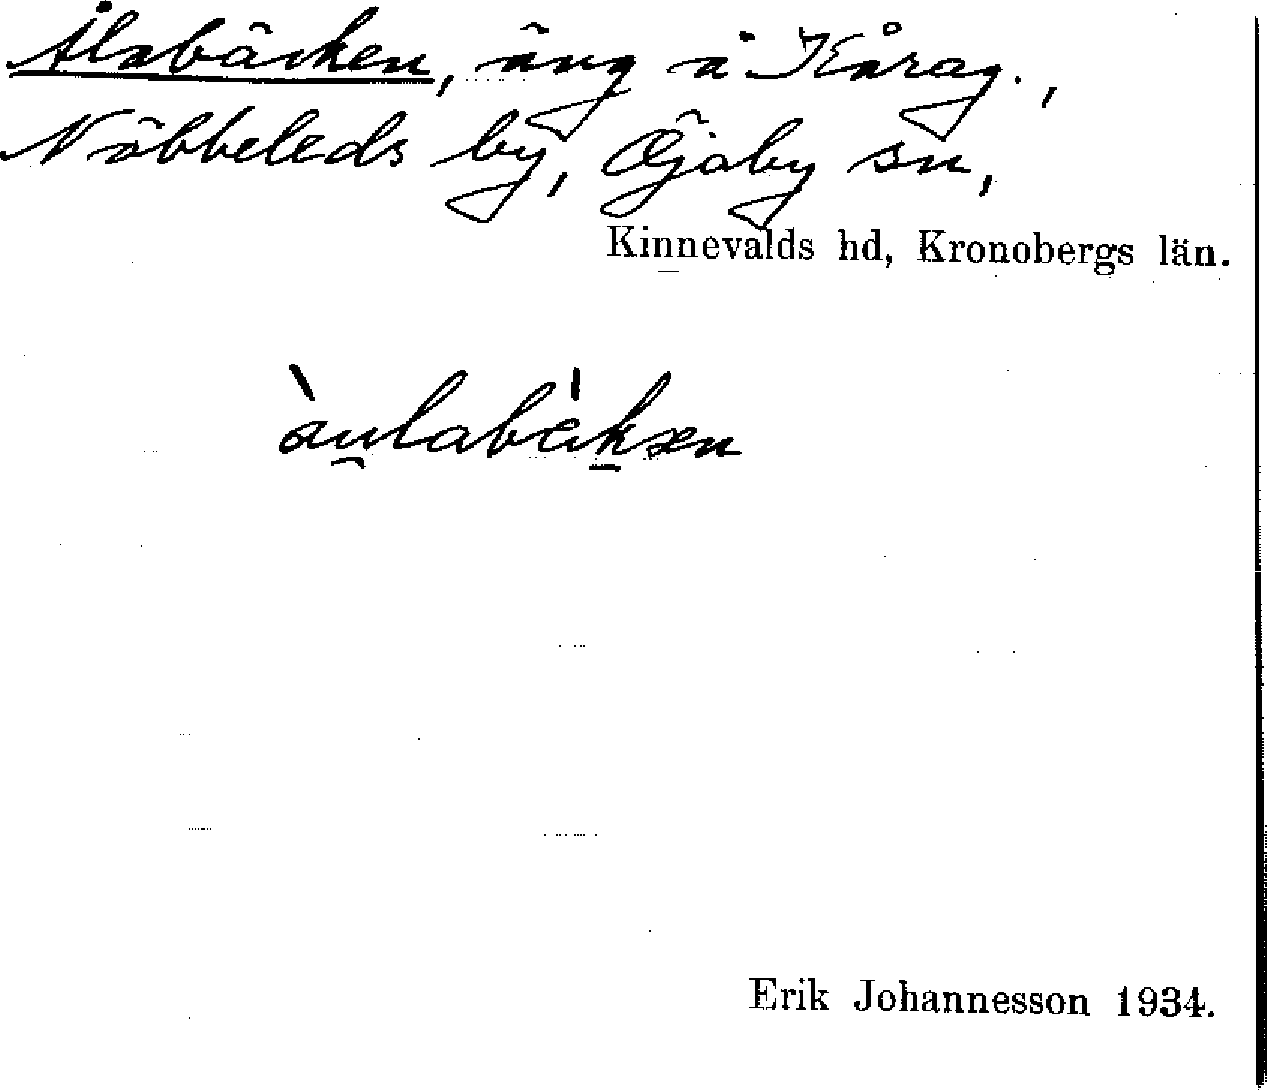 Ålabäcken, äng å Kårag.,
Nöbbeleds by, Öjaby sn,
Kinnevalds hd, Kronobergs län.
àu̯labèḵsen
Erik Johannesson 1934.